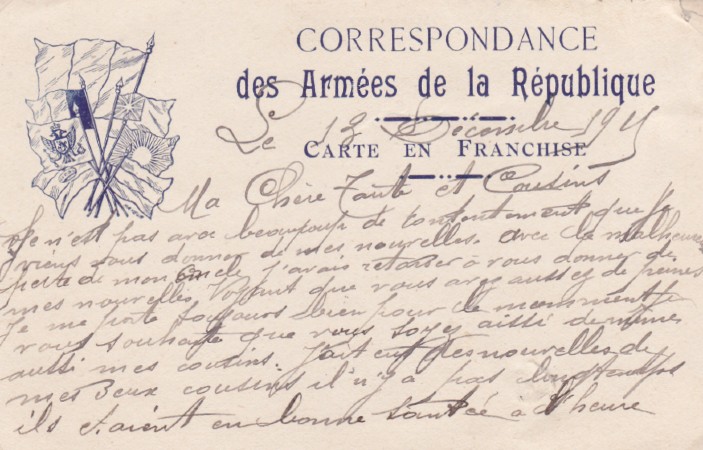 CORRESPONDANCE
des Armées de la République
Le 13 Décembre 1915
CARTE EN FRANCHISE
Ma Chère Tante et Cousins
Je n'est pas avec beaucoup de contentement que je
viens vous donner de mes nouvelles. avec le malheureuse
perte de mon oncle j'avais retarser à vous donner de
mes nouvelles Voyant que vous avez aussez de peines
Je me porte toujours bien pour le momment je
vous souhaite que vous soyez aissi de même
aussi mes cousins. J'ait eut des nouvelles de
mes deux cousins il n'y a pas longtemps
ils etaient en bonne santée à l'heure